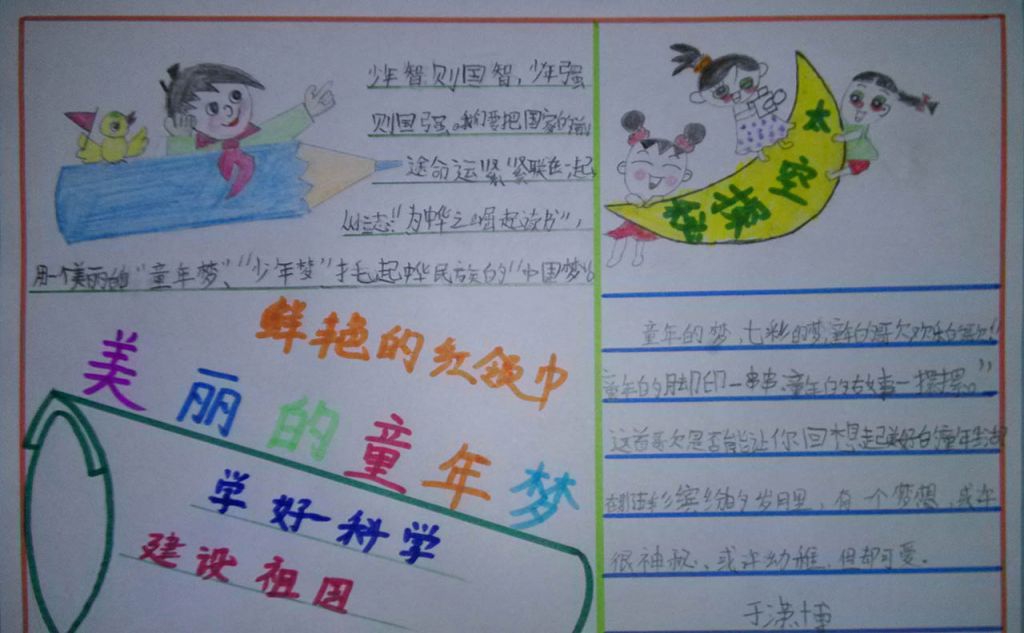 少年智则国智，少年强
则国强。我们要把国家的前
途命运紧紧联在一起，
从立志"为中华之崛起读书"，
用一个美丽的"童年梦"、"少年梦"托起中华民族的"中国梦"。
鲜艳的红领巾
美丽的童年梦
学好科学
建设祖国
太空探秘
童年的梦、七彩的梦，童年的歌欢乐的歌。
童年的脚印一串串，童年的故事一摞摞。"
这首歌是否能让你回想起美好的童年生活
在那五彩缤纷的岁月里，有一个梦想，或许
很神秘、或许幼稚、但却可爱。